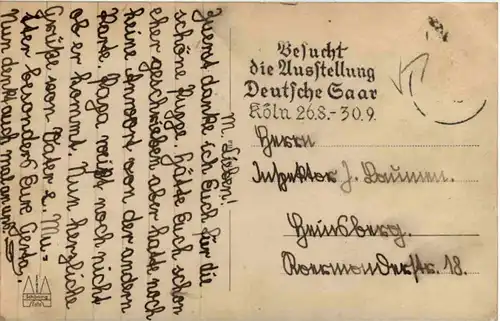 M. Lieben!
Zuerst danke ich Euch für die
schöne Puppe. Hätte Euch schon
eher geschrieben aber hatte noch
keine Antwort von der andern
Karte. Papa weißt noch nicht
ob er kommt. Nun herzliche
Grüße von Vater &. Mu-
tter besonders Eure Gerda.
Nun denkt auch mal an uns.
Besucht
die Ausstellung
Deutsche Saar
Köln 26.8.-30.9.
Herrn
Inspektor J. Baumen.
Heinsberg.
Roermonderstr. 18.